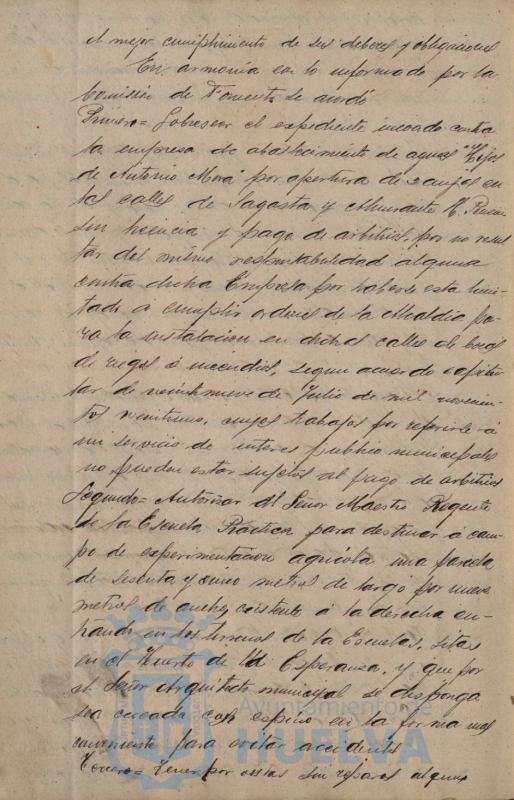 el mejor cumplimiento de sus deberes y obligaciones
En armonía con lo informado por la
Comisión de Fomento se acordó
Primero= Sobreseer el expediente incoado contra
la empresa de abastecimiento de aguas "Hijos
de Antonio Mora" por apertura de zanjas en
las calles de Sagasta y Almirante H. Pinzon
sin licencia y pago de arbitrios, por no resul
tar del mismo responsabilidad alguna
contra dicha Empresa por haberse esta limi
tado a cumplir ordenes de la Alcaldia pa
ra la instalacion en dichas calles de bocas
de riegos é incendios, segun acuerdo capitu
lar de veintinueve de Julio de mil novecien
tos veintiuno, cuyos trabajos por referirse á
un servicio de interes publico municipales
no pueden estar sujetos al pago de arbitrios
Segundo= Autorizar al Señor Maestro Regente
de la Escuela Practica para destinar á cam-
po de experimentacion agricola una parcela
de sesenta y cinco metros de largo por nueve
metros de ancho, existente á la derecha en-
trando en los terrenos de la Escuelas, sitas
en el Huerto de la Esperanza, y que por
el Señor Arquitecto municipal se disponga
sea cercada con espino en la forma mas
conveniente para evitar accidentes
Tercero= Tener por vistas sin reparos alguno
Ayuntamiento de
HUELVA